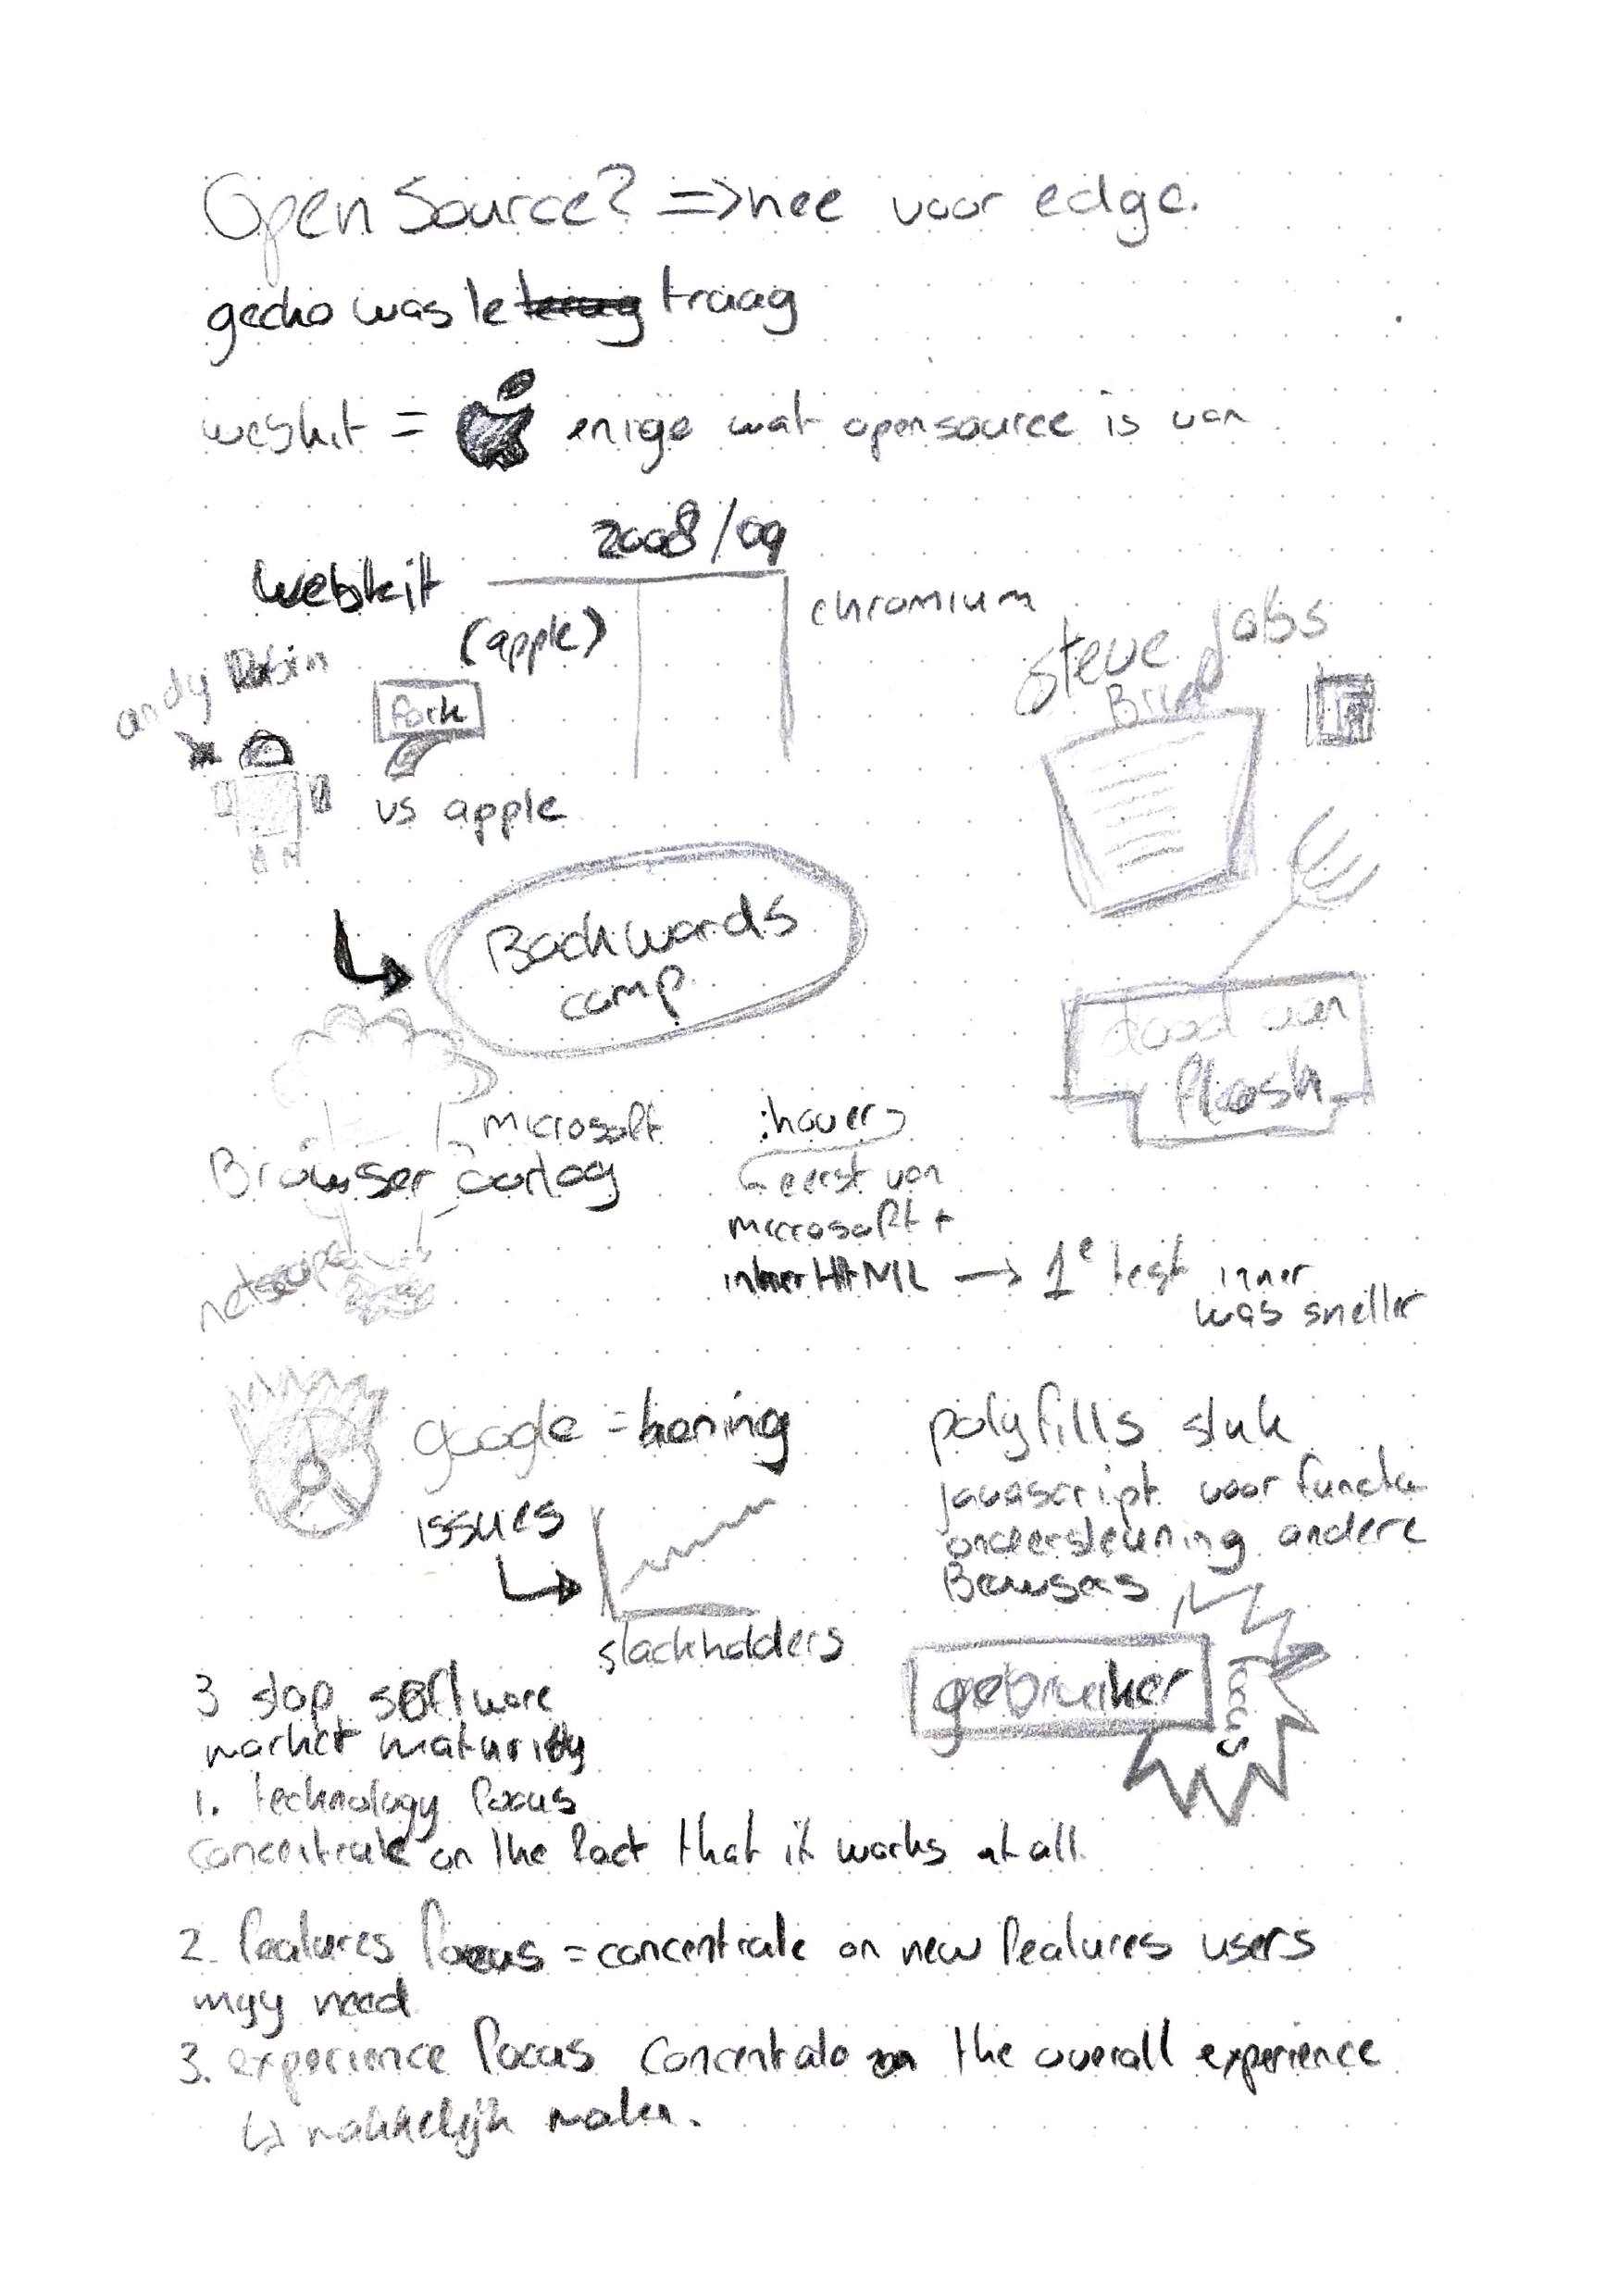 Open Source? => nee voor edge.
gecko was te traag
webkit = enige wat opensource is van
2008/09
webkit
(apple)
chromium
andy Rubin
Fork
vs apple
Steve Jobs
Brief
Backwards
comp.
dood aan
flash
microsoft
Browser oorlog
netscape
:hover
eerst van
microsoft +
innerHTML → 1e test inner
was sneller
google = koning
issues
stackholders
polyfills stuk
javascript voor functie
ondersteuning andere
Browsers
gebruiker
focus
3 stap software
market maturity
1. technology focus
concentrate on the fact that it works at all.
2. features focus = concentrate on new features users
may need
3. experience focus concentrate on the overall experience
↳ makkelijk maken.